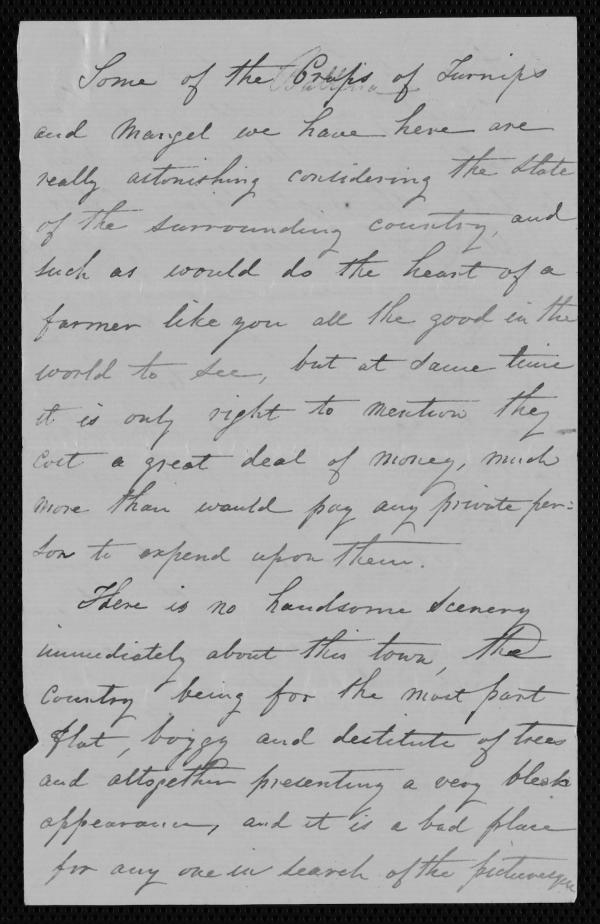 Some of the Crops of Turnips
and Mangel we have here are
really astonishing considering the state
of the surrounding country, and
such as would do the heart of a
farmer like you all the good in the
world to see, but at same time
it is only right to mention they
cost a great deal of money, much
more than would pay any private per=
son to expend upon them.
There is no handsome scenery
immediately about this town, the
Country being for the most part
flat, boggy and destitute of trees
and altogether presenting a very bleak
appearance, and it is a bad place
for any one in search of the picturesque